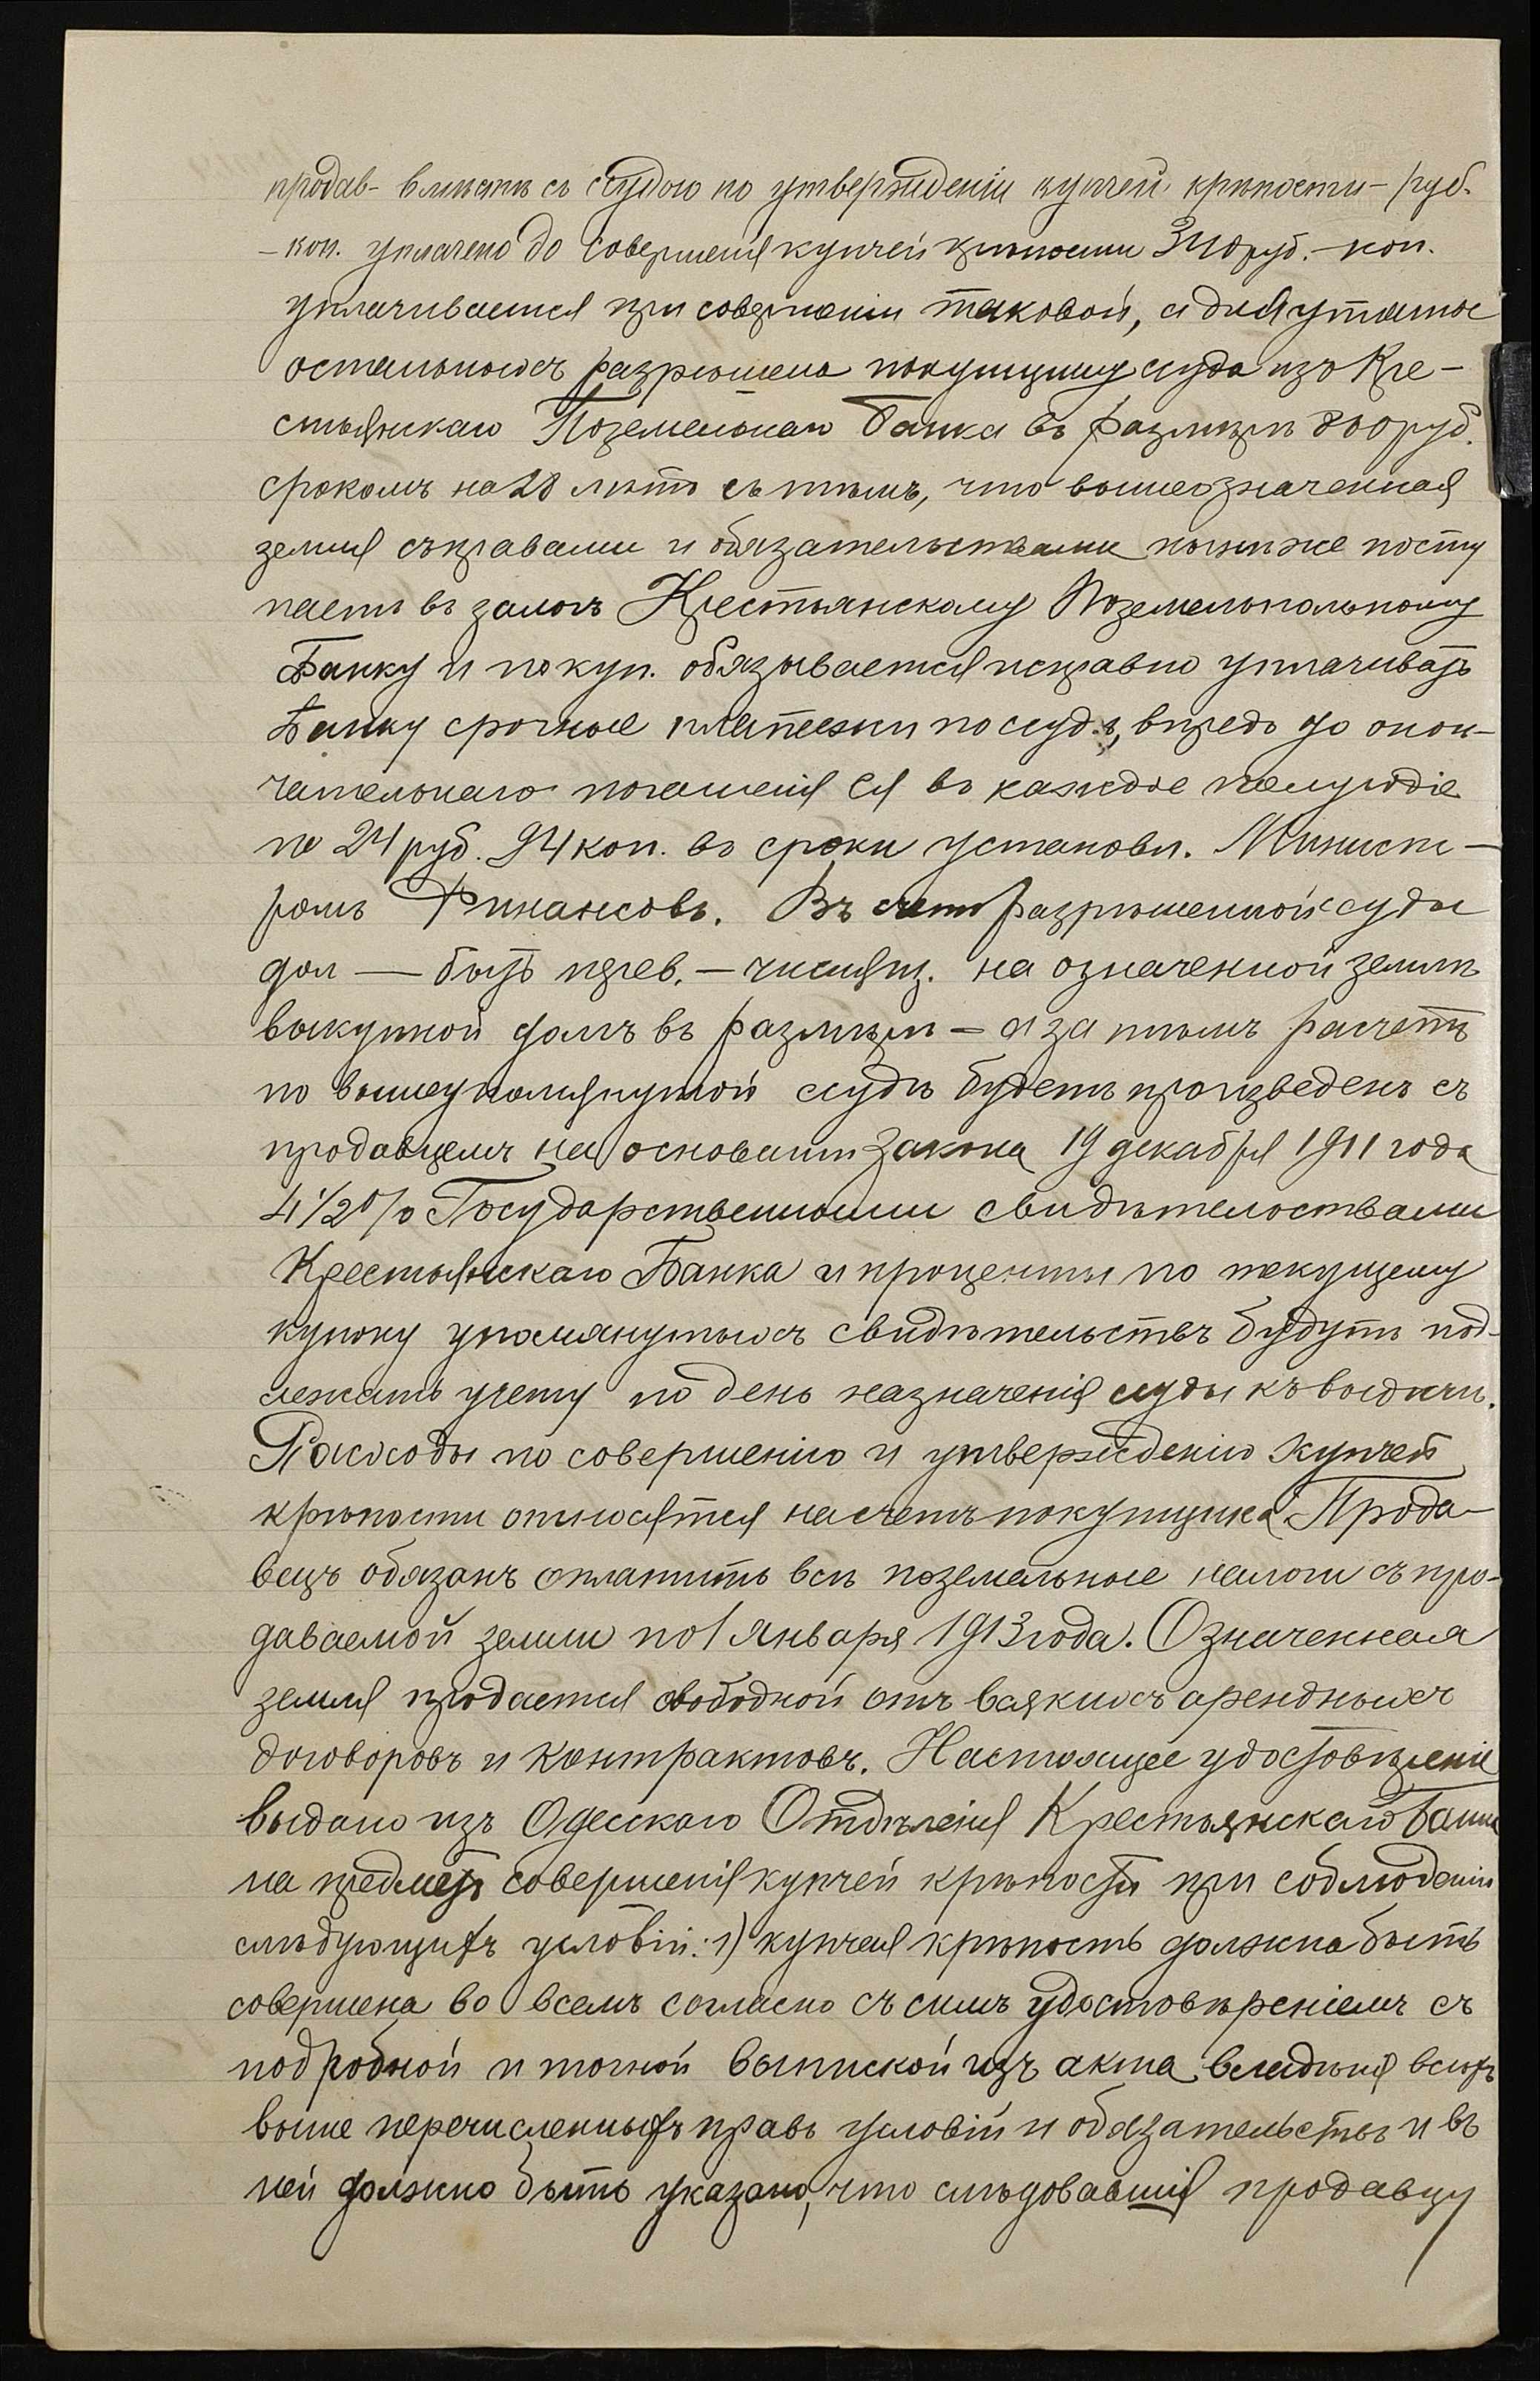 продав- вмѣстѣ съ ссудою по утвержденіи купчей крѣпости – руб.
– коп. уплачено до совершенія купчей крѣпости 340 руб. – коп.
уплачивается при совершеніи таковой, а для уплаты
остальныхъ разрѣшена покупщику ссуда изъ Кре-
стьянскаго Поземельнаго Банка въ размѣрѣ 800 руб.
срокомъ на 28 лѣтъ съ тѣмъ, что вышеозначенная
земля съ правами и обязательствами нынѣ же посту
паетъ въ залогъ Крестьянскому Поземельнальному
Банку и покуп. обязывается исправно уплачивать
Банку срочные платежи по ссудѣ, впредь до окон-
чательнаго погашенія ея въ каждое полугодіе
по 24 руб. 94 коп. въ сроки установл. Министе-
ромъ Финансовъ. Въ счетъ разрѣшенной ссуды
дол — быть перев. – числящ. на означенной землѣ
выкупной долгъ въ размѣрѣ – а за тѣмъ расчетъ
по вышеупомянутой ссудѣ будетъ произведенъ съ
продавцемъ на основаніи Закона 19 декабря 1911 года
4 1/2 % Государственными свидѣтельствами
Крестьянскаго Банка и проценты по текущему
купону упомянутыхъ свидѣтельствъ будутъ под-
лежать учету по день назначенія ссуды къ выдачѣ.
Расходы по совершенію и утвержденію купчей
крѣпости относятся на счетъ покупщика Прода-
вецъ обязанъ оплатить всѣ поземельные налоги съ про-
даваемой земли по 1 Января 1913 года. Означенная
земля продается свободной отъ всякихъ арендныхъ
договоровъ и контрактовъ. Настоящее удостовѣреніе
выдано изъ Одесскаго Отдѣленія Крестьянскаго Банка
на предметъ совершенія купчей крѣпости при соблюденіи
слѣдующихъ условій: 1) купчая крѣпость должна быть
совершена во всемъ согласно съ симъ удостовѣреніемъ съ
подробной и точной выпиской изъ акта владѣнія всѣхъ
выше перечисленныхъ правъ условій и обязательствъ и въ
ней должно быть указано, что слѣдовавшія продавцу